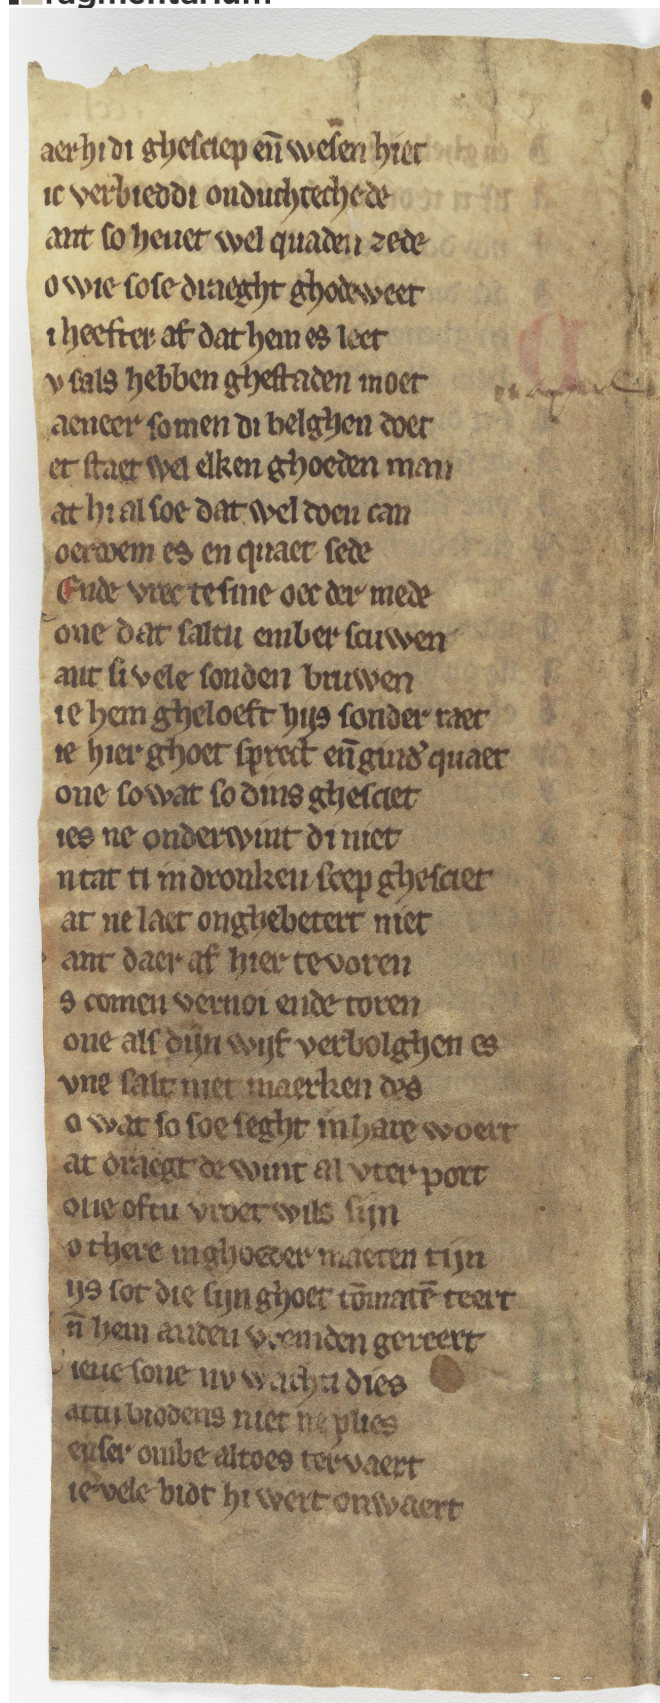 aer hi di ghesciep en̄ wesen hiet
ic verbieddi onduchtechede
ant so heuet wel quaden zede
o wie so se draeght ghodeweet
i heefter af dat hem es leet
v sals hebben ghestaden moet
aeneer so men di belghen doet
et staet wel elken ghoeden man
at hi al soe dat wel doen can
oerwem es en quaet sede
Ende vrec te sine oec der mede
one dat saltu ember scuwen
ant si vele sonden bruwen
ie hem gheloeft hijs sonder raet
ie hier ghoet sprect en̄ gind' quaet
one so wat so dins ghesciet
ies ne onderwint di niet
ntat ti in dronken scep ghesciet
at ne laet onghebetert niet
ant daer af hier te voren
s comen vernoi ende toren
one als dijn wijf verbolghen es
vne salt niet maerken des
o wat so soe seght in hare woert
at draegt de wint al vter port
one oftu vroet wils sijn
o there in ghoeder maeten tijn
ijs sot die sijn ghoet tōmatē teert
n̄ hem anden vremden gereert
ieue sone nv wachti dies
attu biddens niet ne plies
ombe altoes tervaert
ie vele bidt hi wert onwaert